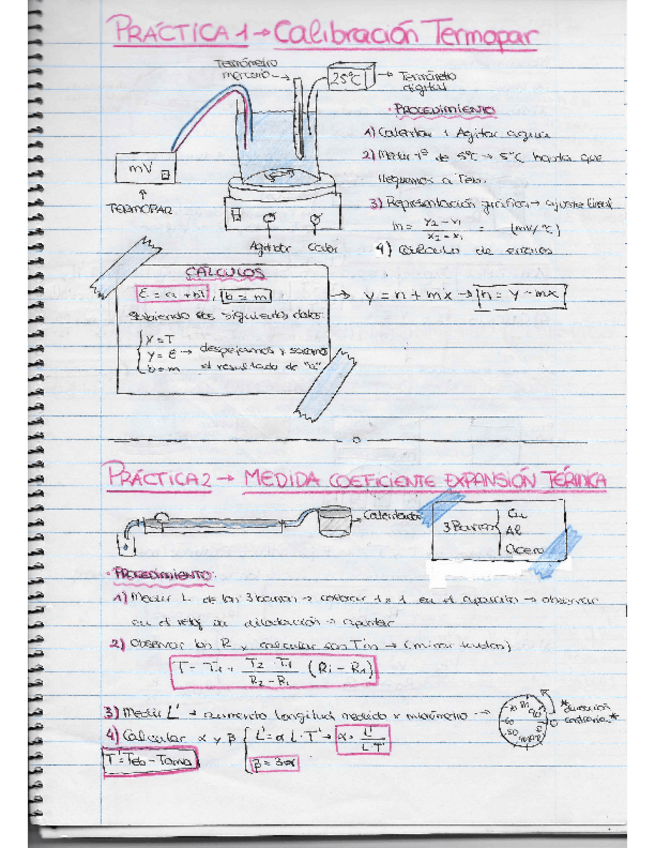 PRÁCTICA 1 → Calibración Termopar
Termómetro
mercurio
25°C
Termómetro
digital
mV
TERMOPAR
Agitador Calor
· PROCEDIMIENTO
1) Calentar + Agitar agua
2) Medir Tª de 5°C → 5°C hasta que
lleguemos a Teb.
3) Representación gráfica → ajuste lineal
m = y₂ - y₁ / x₂ - x₁ = (mV/°C)
4) Cálculo de errores
CÁLCULOS
E = a + bT, b = m → y = n + mx → n = y - mx
Sabiendo los siguientes datos:
x = T
y = E → despejamos y sacamos
b = m el resultado de "a"
PRÁCTICA 2 → MEDIDA COEFICIENTE EXPANSIÓN TÉRMICA
Calentador
3 Barras
Cu
Al
Acero
· PROCEDIMIENTO:
1) Medir L de las 3 barras → colocar 1 x 1 en el aparato → observar
en el reloj su dilatación → apuntar
2) Observar las R y calcular las (mirar
T = T₁ + T₂ - T₁ / R₂ - R₁ (Ri - R₁)
3) Medir L' → aumento longitud medido x micrómetro →
4) Calcular α y β { L' = α L · T' → α = L' / L · T'
β = 3α
T' = Teb - Tamb